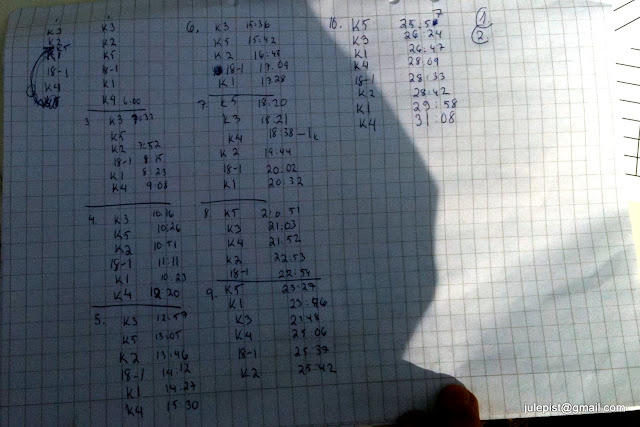 K3
K5
18-1
K4
K3
K2
K5
18-1
K1
K4 6:00
3. K3
K5
K2 7:52
18-1 8:15
K1 8:23
K4 9:08
4. K3 10:16
K5 10:26
K2 10:51
18-1 11:11
K1
K4 12:20
5. K3 12:57
K5 13:05
K2 13:46
18-1 14:12
K1 14:27
K4 15:30
6. K3 15:36
K5 15:42
K2 16:48
18-1 17:09
K1 17:28
7. K5 18:20
K3 18:21
K4 18:38
K2 19:44
18-1 20:02
K1 20:32
8. K5 20:51
K3 21:03
K4 21:52
K2 22:53
18-1 22:54
9. K5 23:27
K1
K3 23:48
K4 25:06
18-1 25:37
K2 25:42
10. K5 25:57
K3 26:24
K1 26:47
K4 28:09
18-1 28:33
K2 28:42
K1 29:58
K4 31:08
1
2
julepist@gmail.com